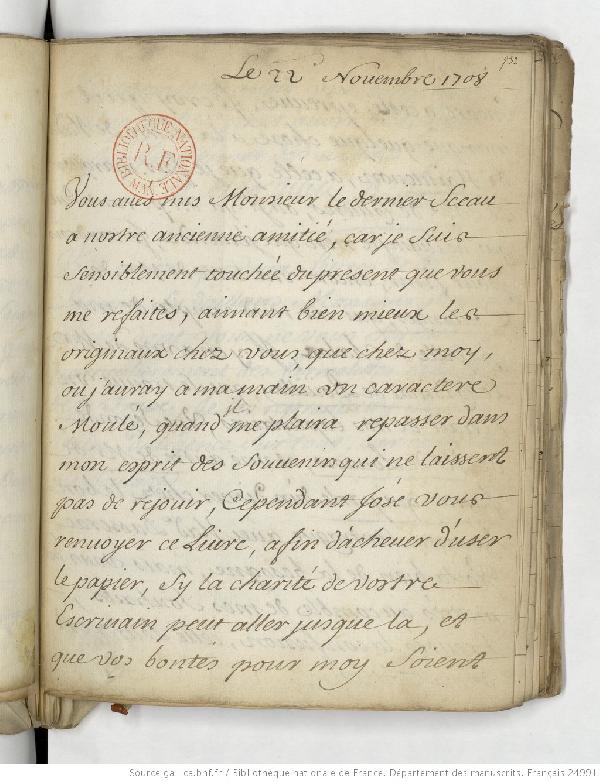 132
Le 22 Nouembre 1708
BIBLIOTHEQUE NATIONALE MSS
R.F.
Vous aués mis Monsieur le dernier Sceau
a nostre ancienne amitié, car je Suis
Sensiblement touchée du present que vous
me refaites, aimant bien mieux les
originaux chez vous que chez moy,
ou j'auray a ma main vn caractere
Moulé, quand il me plaira repasser dans
mon esprit des Souuenirs qui ne laissent
pas de rejouir, Cependant J'ose vous
renuoyer ce Liure, afin d'acheuer d'user
le papier, Sy la charité de vostre
Escriuain peut aller jusque la, et
que vos bontés pour moy Soient
Source gallica.bnf.fr / Bibliothèque nationale de France. Département des manuscrits. Français 24991